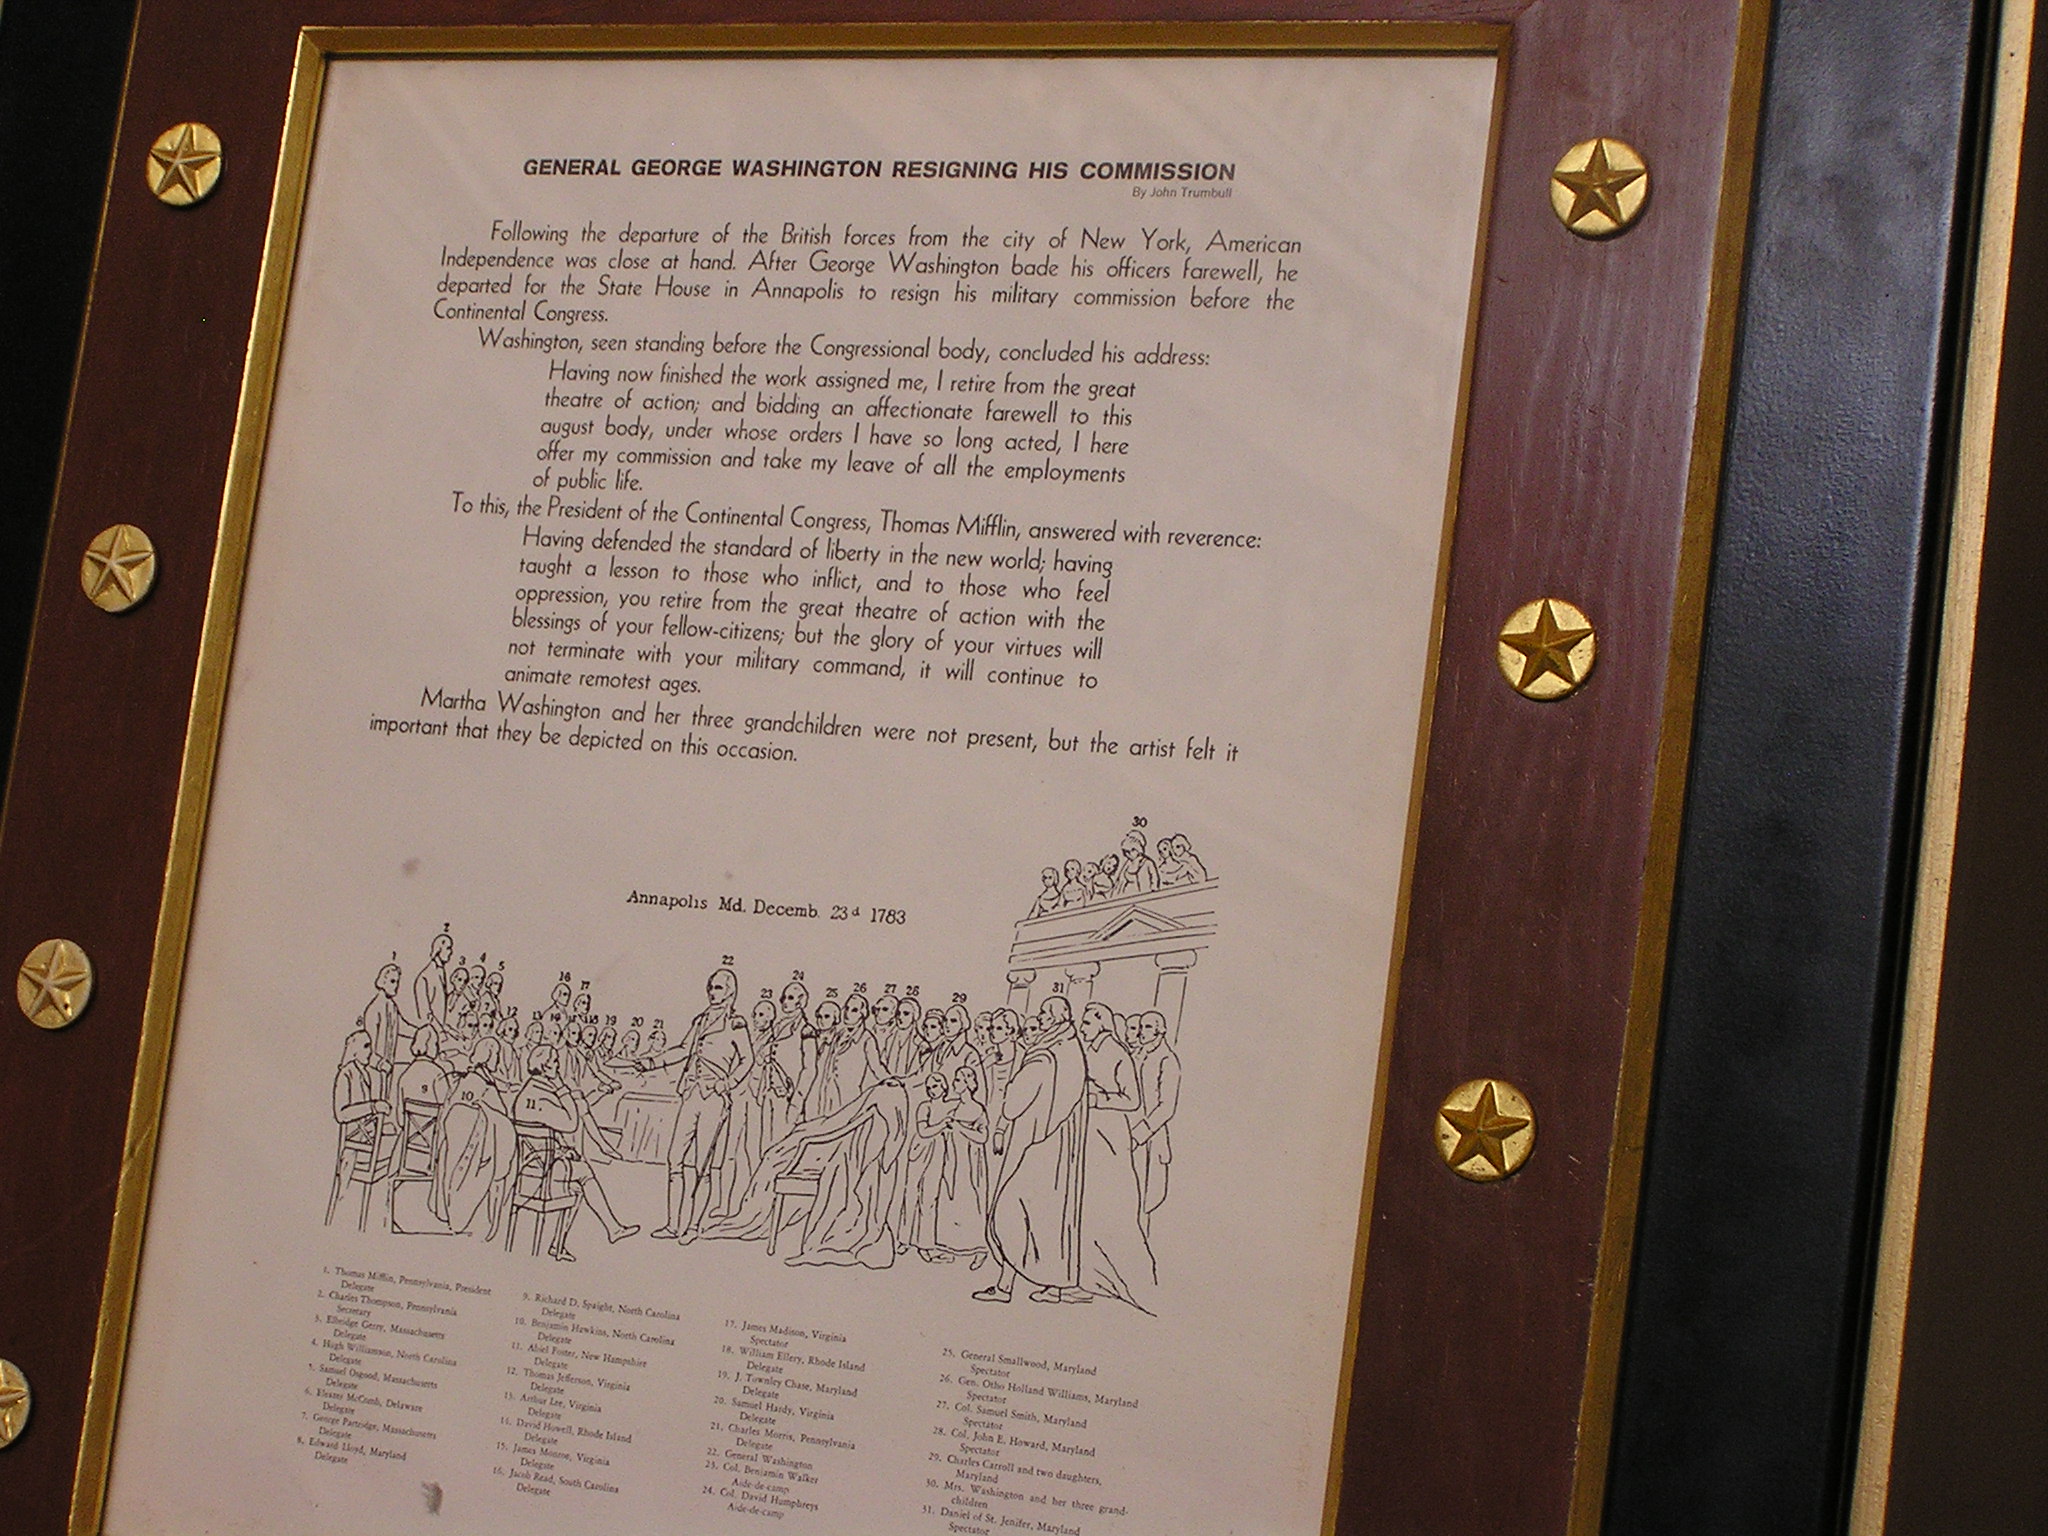 GENERAL GEORGE WASHINGTON RESIGNING HIS COMMISSION
By John Trumbull
Following the departure of the British forces from the city of New York, American
Independence was close at hand. After George Washington bade his officers farewell, he
departed for the State House in Annapolis to resign his military commission before the
Continental Congress.
Washington, seen standing before the Congressional body, concluded his address:
Having now finished the work assigned me, I retire from the great
theatre of action; and bidding an affectionate farewell to this
august body, under whose orders I have so long acted, I here
offer my commission and take my leave of all the employments
of public life.
To this, the President of the Continental Congress, Thomas Mifflin, answered with reverence:
Having defended the standard of liberty in the new world; having
taught a lesson to those who inflict, and to those who feel
oppression, you retire from the great theatre of action with the
blessings of your fellow-citizens; but the glory of your virtues will
not terminate with your military command, it will continue to
animate remotest ages.
Martha Washington and her three grandchildren were not present, but the artist felt it
important that they be depicted on this occasion.
Annapolis Md. Decemb. 23d 1783
30
1
2
3
4
5
16
17
22
23
24
25
26
27
28
29
31
12
19
20
21
9
10
11
1. Thomas Mifflin, Pennsylvania, President
Delegate
2. Charles Thompson, Pennsylvania
Secretary
3. Elbridge Gerry, Massachusetts
Delegate
4. Hugh Williamson, North Carolina
Delegate
5. Samuel Osgood, Massachusetts
Delegate
6. Eleazer McComb, Delaware
Delegate
7. George Partridge, Massachusetts
Delegate
8. Edward Lloyd, Maryland
Delegate
9. Richard D. Spaight, North Carolina
Delegate
10. Benjamin Hawkins, North Carolina
Delegate
11. Abiel Foster, New Hampshire
Delegate
12. Thomas Jefferson, Virginia
Delegate
13. Arthur Lee, Virginia
Delegate
14. David Howell, Rhode Island
Delegate
15. James Monroe, Virginia
Delegate
16. Jacob Read, South Carolina
Delegate
17. James Madison, Virginia
Spectator
18. William Ellery, Rhode Island
Delegate
19. J. Townley Chase, Maryland
Delegate
20. Samuel Hardy, Virginia
Delegate
21. Charles Morris, Pennsylvania
Delegate
22. General Washington
23. Col. Benjamin Walker
Aide-de-camp
24. Col. David Humphreys
Aide-de-camp
25. General Smallwood, Maryland
Spectator
26. Gen. Otho Holland Williams, Maryland
Spectator
27. Col. Samuel Smith, Maryland
Spectator
28. Col. John E. Howard, Maryland
Spectator
29. Charles Carroll and two daughters,
Maryland
30. Mrs. Washington and her three grand-
children
31. Daniel of St. Jenifer, Maryland
Spectator